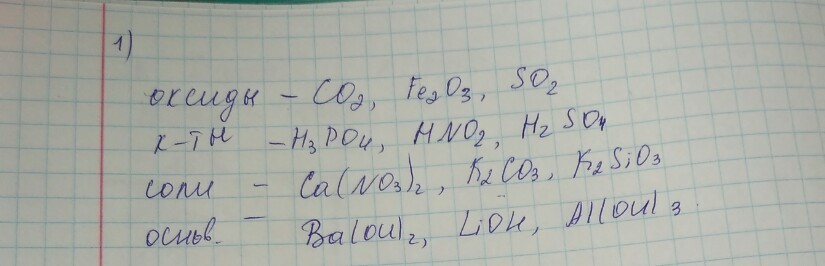 1)
оксиды - CO₂, Fe₂O₃, SO₂
к-ты - H₃PO₄, HNO₂, H₂SO₄
соли - Ca(NO₃)₂, K₂CO₃, K₂SiO₃
основ. - Ba(OH)₂, LiOH, Al(OH)₃